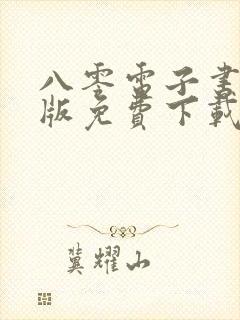 八零电子书
版免费下载
冀耀山